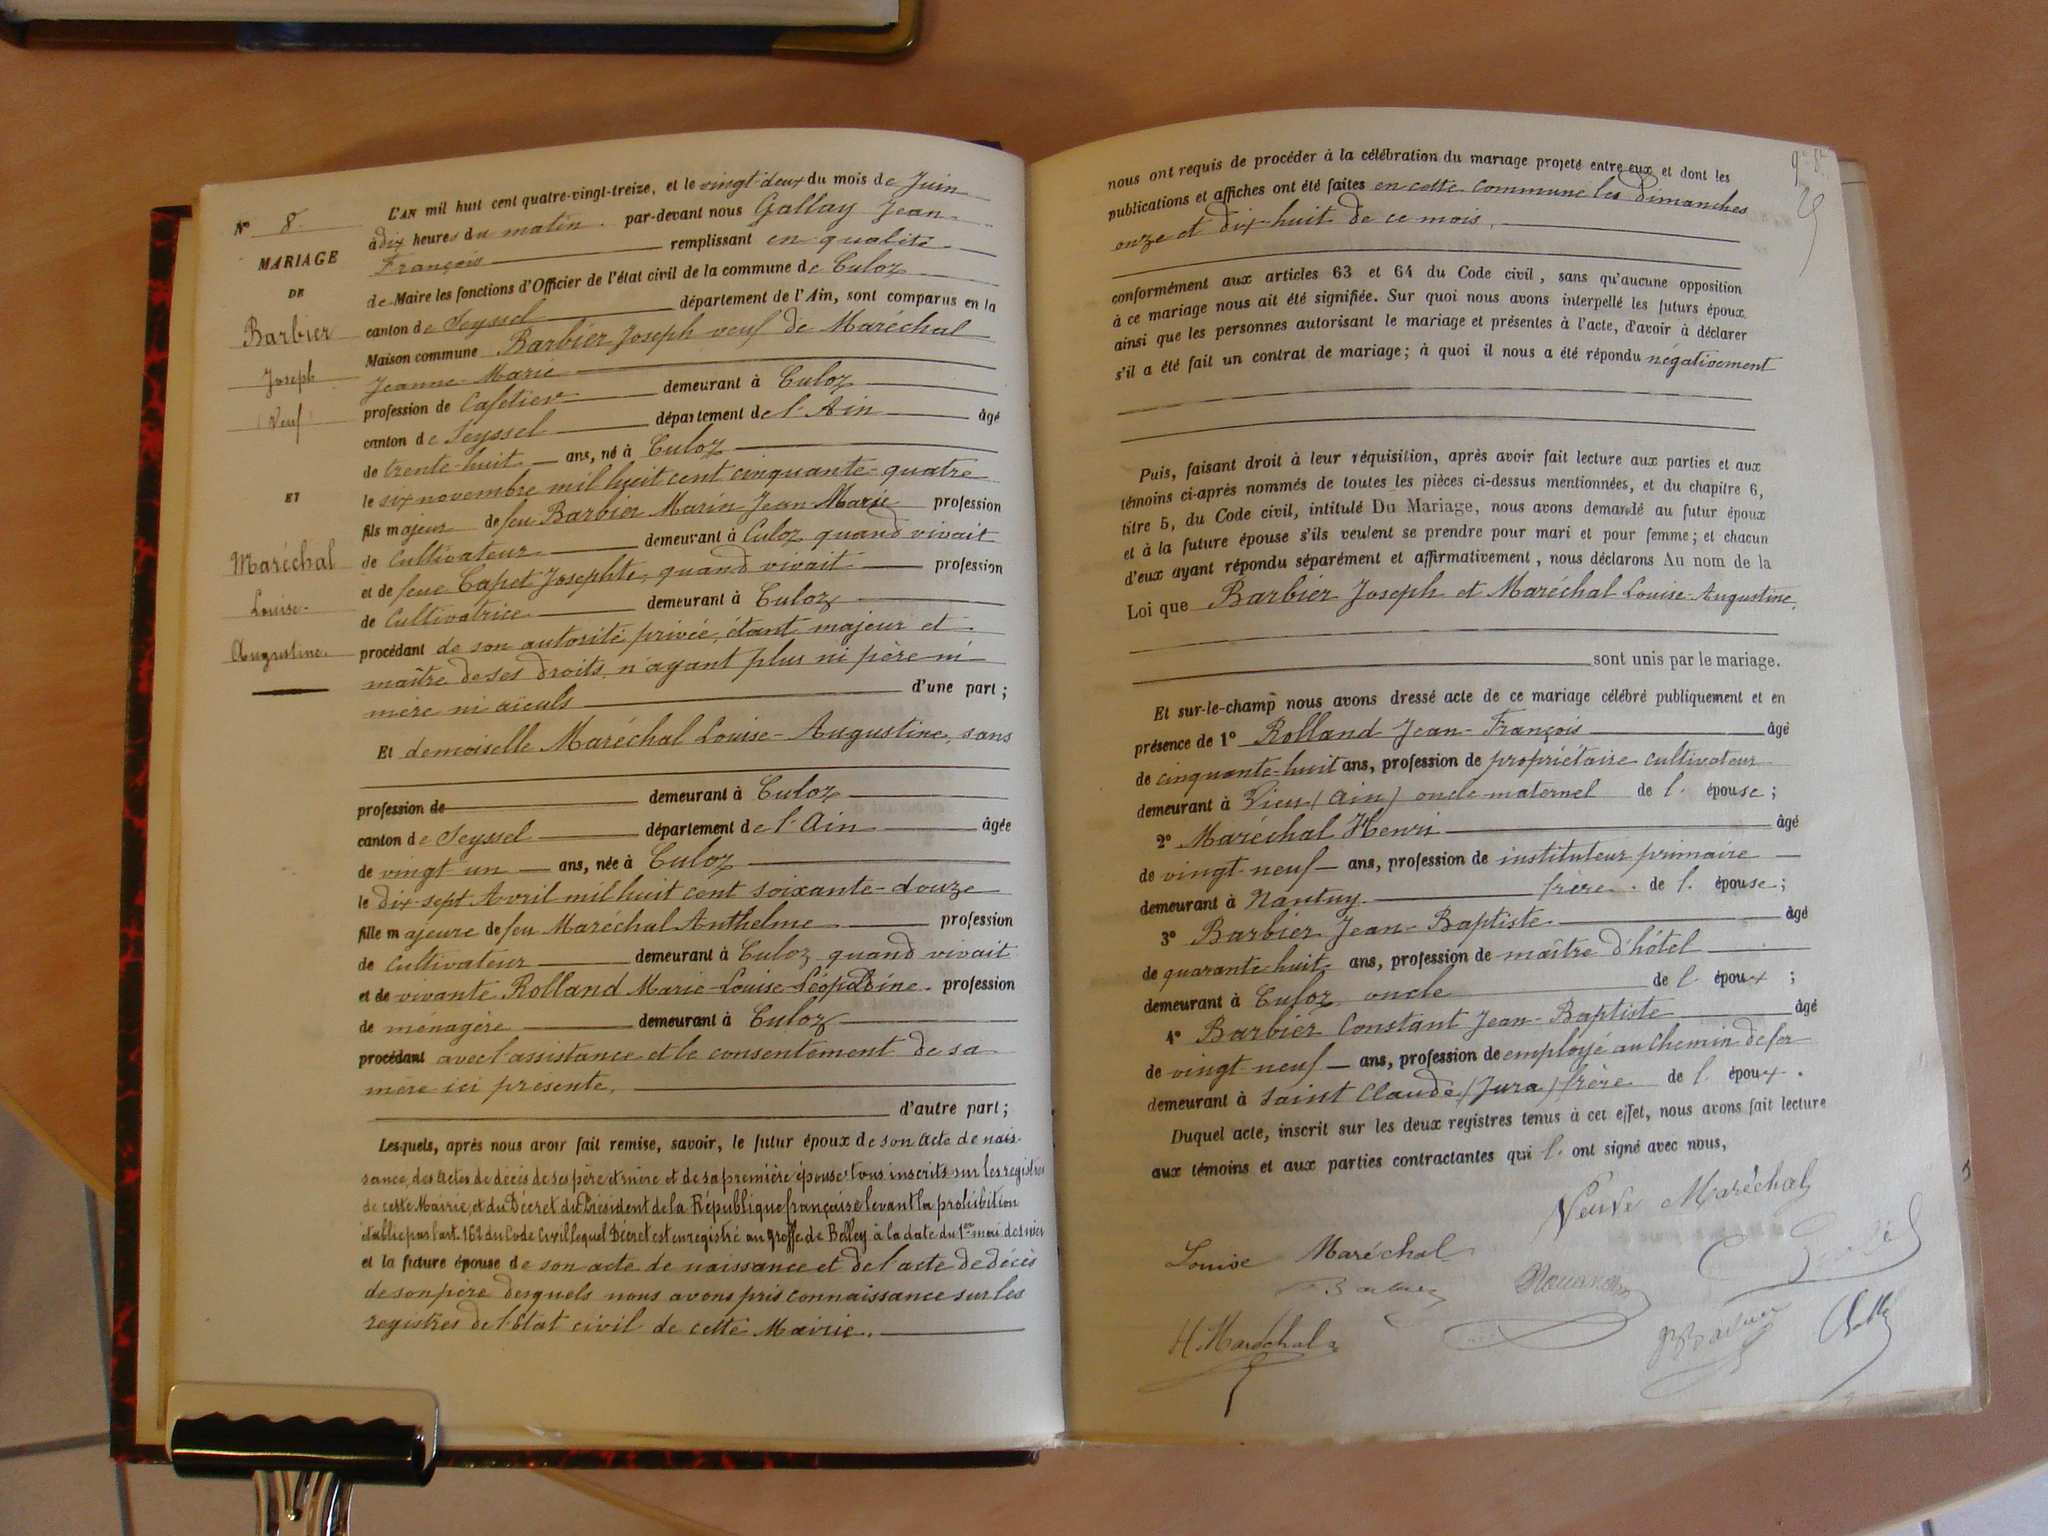 N° 8.
MARIAGE
DE
Barbier
Joseph
(Veuf)
ET
Maréchal
Louise-
Augustine.
L'AN mil huit cent quatre-vingt-treize, et le vingt-deux du mois de Juin
à dix heures du matin. par-devant nous Gallay Jean-
François remplissant en qualité
de Maire les fonctions d'Officier de l'état civil de la commune de Culoz
canton de Seyssel département de l'Ain, sont comparus en la
Maison commune Barbier Joseph veuf de Maréchal
Jeanne-Marie
profession de Cafetier demeurant à Culoz
canton de Seyssel département de l'Ain âgé
de trente-huit ans, né à Culoz
le six novembre mil huit cent cinquante-quatre
fils majeur de feu Barbier Marin Jean-Marie profession
de Cultivateur demeurant à Culoz quand vivait
et de feue Capet Josephte, quand vivait profession
de Cultivatrice demeurant à Culoz
procédant de son autorité privée, étant majeur et
maître de ses droits, n'ayant plus ni père ni
mère ni aïeuls d'une part;
Et demoiselle Maréchal Louise-Augustine, sans
profession de demeurant à Culoz
canton de Seyssel département de l'Ain âgée
de vingt-un ans, née à Culoz
le dix-sept Avril mil huit cent soixante-douze
fille majeure de feu Maréchal Anthelme profession
de Cultivateur demeurant à Culoz quand vivait
et de vivante Rolland Marie-Louise-Léopoldine. profession
de ménagère demeurant à Culoz
procédant avec l'assistance et le consentement de sa
mère ici présente,
d'autre part;
Lesquels, après nous avoir fait remise, savoir, le futur époux de son acte de nais-
sance, des actes de décès de ses père et mère et de sa première épouse tous inscrits sur les registres
de cette Mairie, et du Décret du Président de la République française levant la prohibition
établie par l'art. 162 du Code civil lequel Décret est enregistré au greffe de Belley à la date du 1er mai dernier
et la future épouse de son acte de naissance et de l'acte de décès
de son père desquels nous avons pris connaissance sur les
registres de l'Etat civil de cette Mairie.
nous ont requis de procéder à la célébration du mariage projeté entre eux et dont les
publications et affiches ont été faites en cette commune les dimanches
onze et dix-huit de ce mois,
conformément aux articles 63 et 64 du Code civil, sans qu'aucune opposition
à ce mariage nous ait été signifiée. Sur quoi nous avons interpellé les futurs époux
ainsi que les personnes autorisant le mariage et présentes à l'acte, d'avoir à déclarer
s'il a été fait un contrat de mariage; à quoi il nous a été répondu négativement
Puis, faisant droit à leur réquisition, après avoir fait lecture aux parties et aux
témoins ci-après nommés de toutes les pièces ci-dessus mentionnées, et du chapitre 6,
titre 5, du Code civil, intitulé Du Mariage, nous avons demandé au futur époux
et à la future épouse s'ils veulent se prendre pour mari et pour femme; et chacun
d'eux ayant répondu séparément et affirmativement, nous déclarons Au nom de la
Loi que Barbier Joseph et Maréchal Louise-Augustine,
sont unis par le mariage.
Et sur-le-champ nous avons dressé acte de ce mariage célébré publiquement et en
présence de 1° Rolland Jean-François âgé
de cinquante-huit ans, profession de propriétaire cultivateur
demeurant à Vieu (Ain) oncle maternel de l'épouse;
2° Maréchal Henri âgé
de vingt-neuf ans, profession de instituteur primaire
demeurant à Nantuy frère. de l'épouse;
3° Barbier Jean-Baptiste âgé
de quarante-huit ans, profession de maître d'hôtel
demeurant à Culoz oncle de l'époux;
4° Barbier Constant Jean-Baptiste âgé
de vingt-neuf ans, profession de employé au Chemin de fer
demeurant à Saint Claude (Jura) frère de l'époux.
Duquel acte, inscrit sur les deux registres tenus à cet effet, nous avons fait lecture
aux témoins et aux parties contractantes qui l'ont signé avec nous,
Veuve Maréchal
Louise Maréchal
H. Maréchal